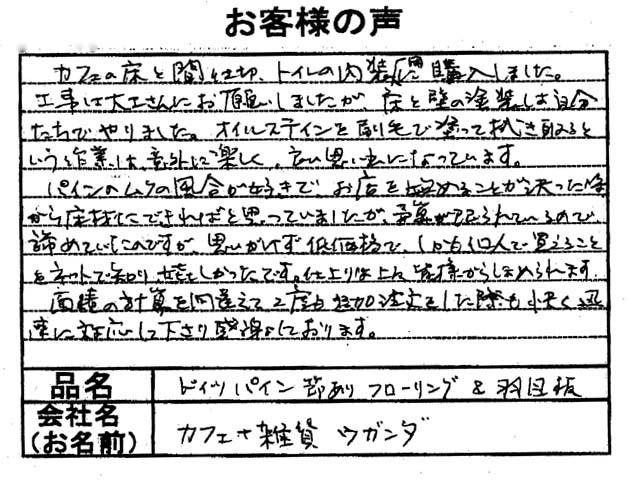 お客様の声
カフェの床と間仕切、トイレの内装用に購入しました。
工事は大工さんにお願いしましたが、床と壁の塗装は自分
たちでやりました。オイルステインを刷毛で塗って拭き取ると
いう作業は、意外に楽しく、良い思い出になっています。
パインのムクの風合が好きで、お店を始めることが決った時
から床材にできればと思っていましたが、予算が限られているので
諦めていたのですが、思いがけず低価格で、しかも個人で買えること
をネットで知り嬉しかったです。仕上りは上々 皆様からほめられます。
面積の計算を間違えて2度も追加注文をした際も快く迅
速に対応して下さり感謝しております。
品名 ドイツパイン節あり フローリング & 羽目板
会社名
(お名前) カフェ+雑貨 ウガンダ